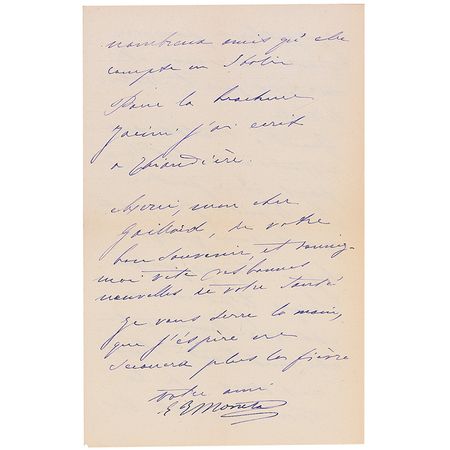 nombreux amis qu'elle
compte en Italie
Pour la brochure
j'ai écrit
a
Merci, mon cher
Gaillard, de votre
bon souvenir, et donnez-
moi vite des bonnes
nouvelles de votre santé
Je vous serre la main,
que j'espère ne
secouera plus la fièvre
Votre ami
E T Moneta